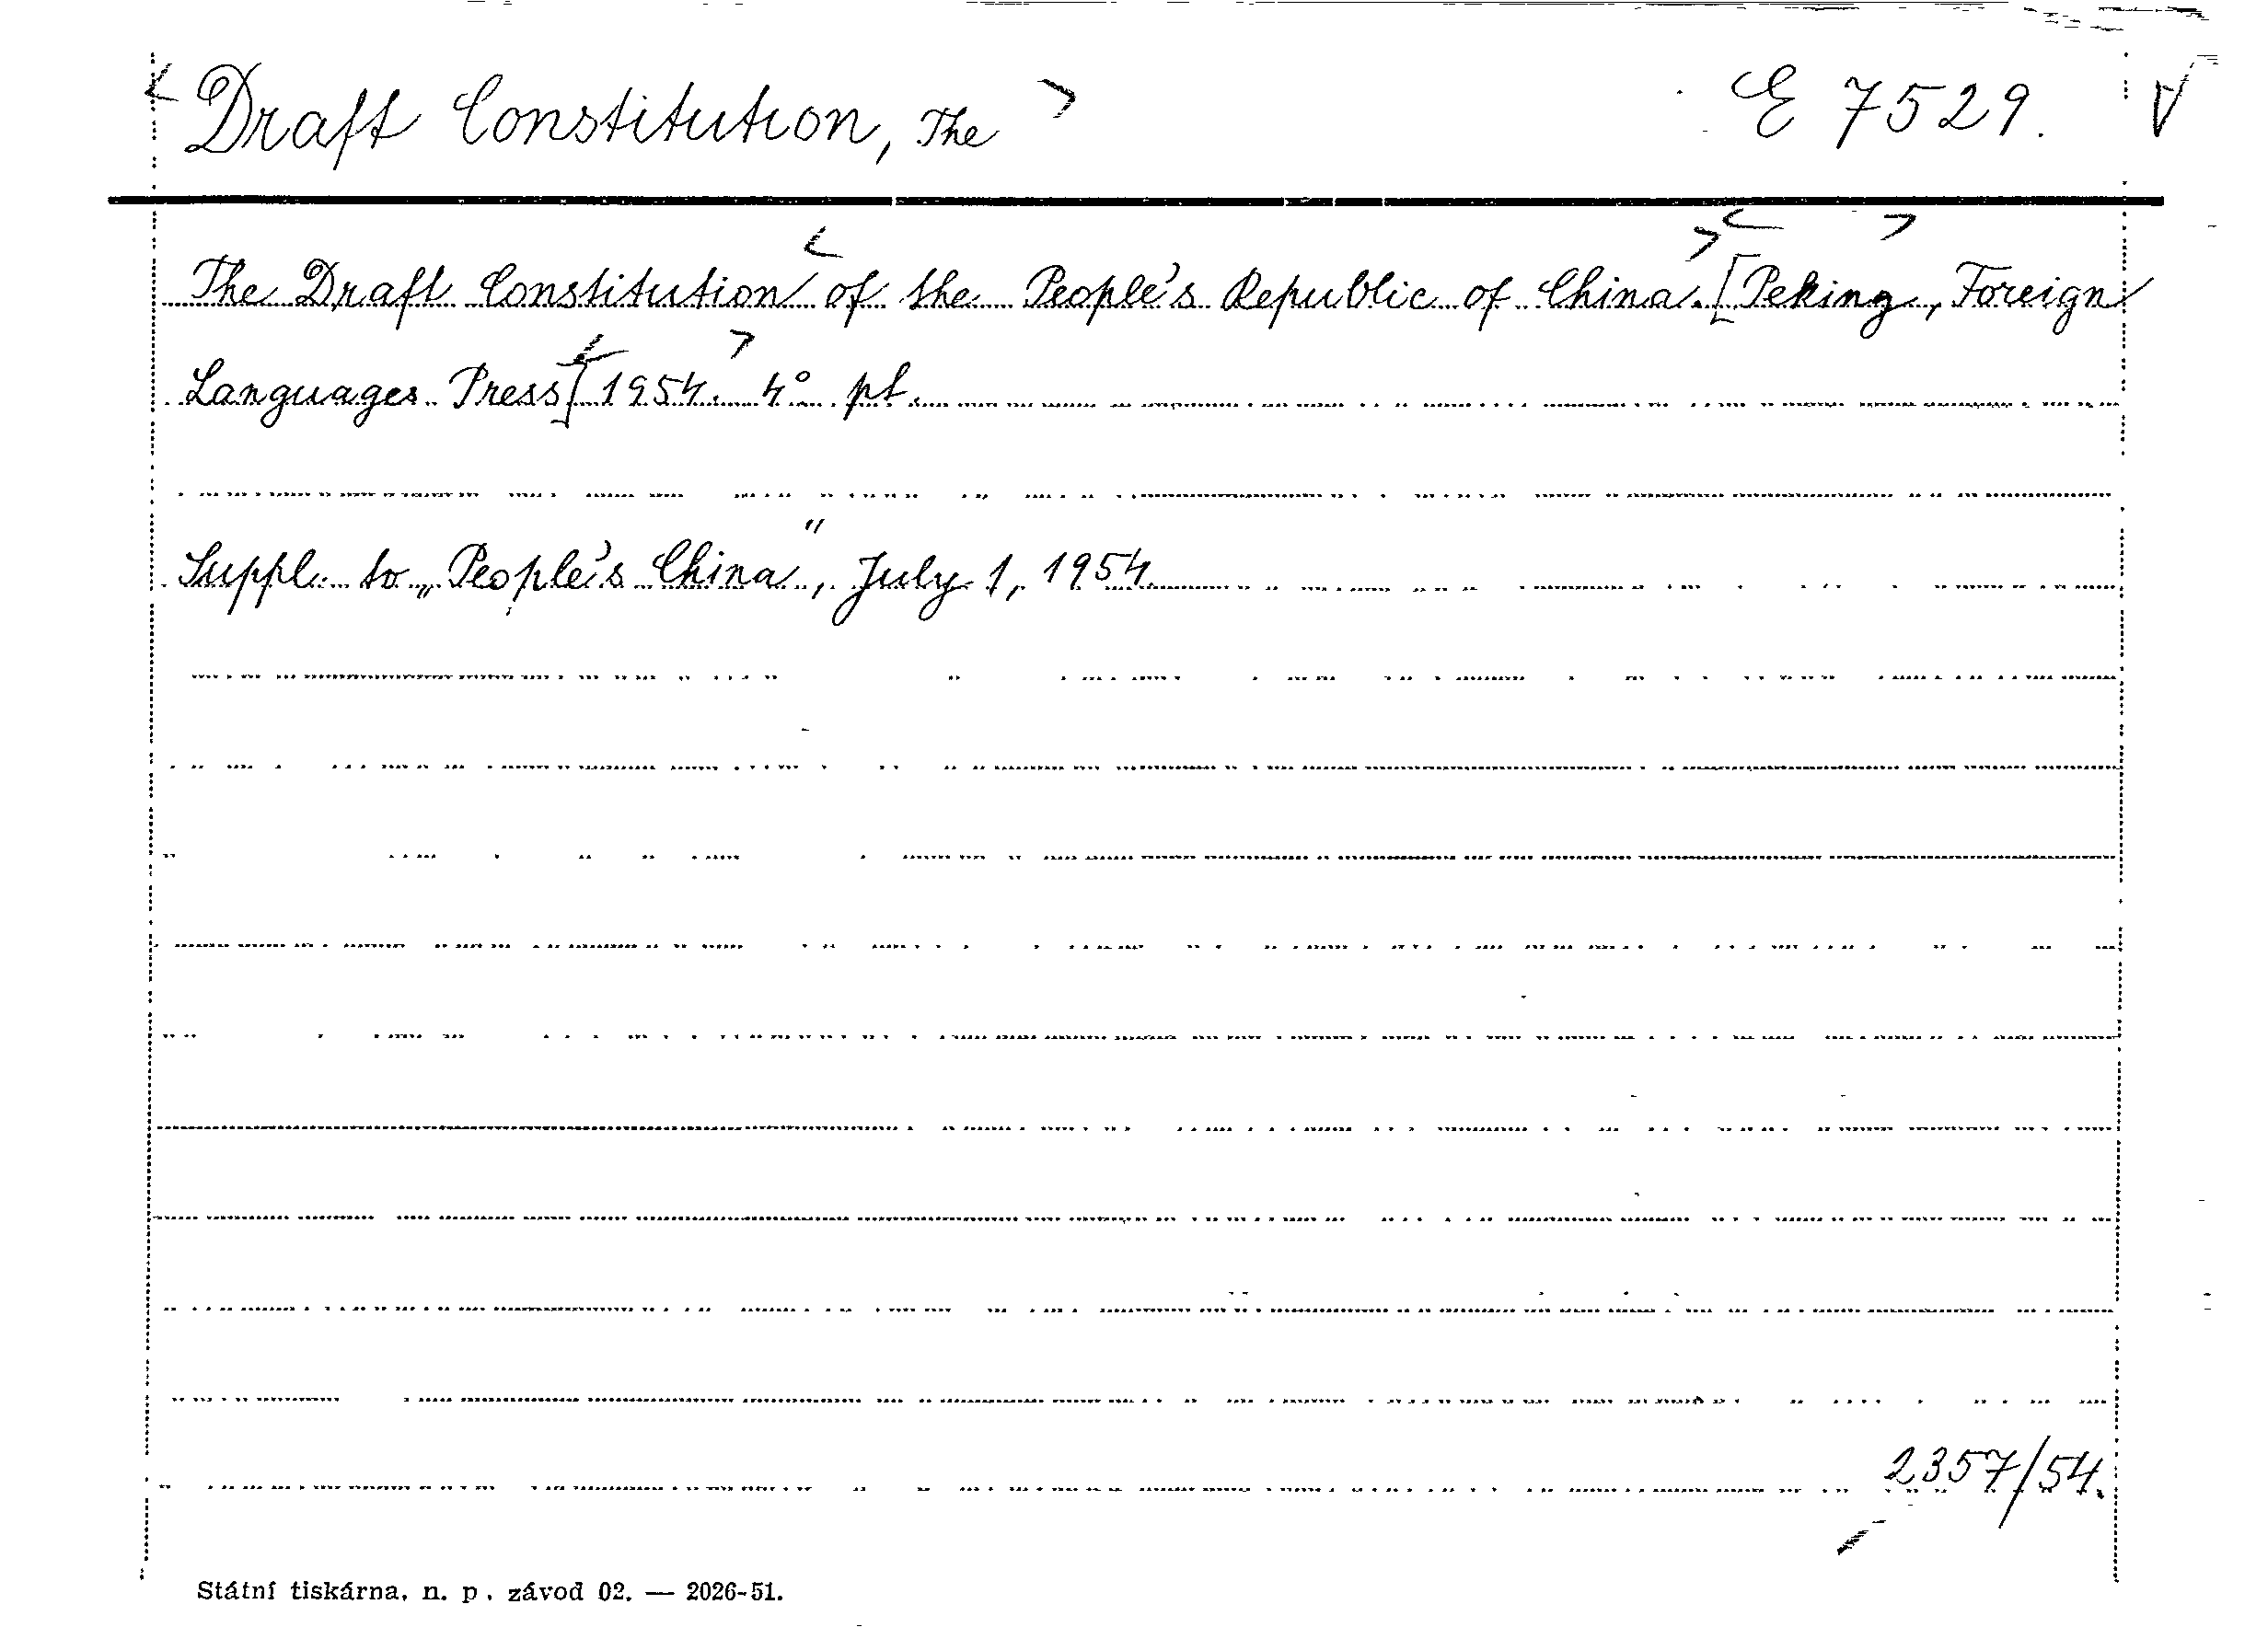 < Draft Constitution, The > E 7529. V
The Draft Constitution < of the People's Republic of China. > [< Peking >, Foreign
Languages Press] < 1954. > 4° pt.
Suppl. to „People's China", July 1, 1954.
2357/54.
Státní tiskárna, n. p., závod 02. — 2026-51.